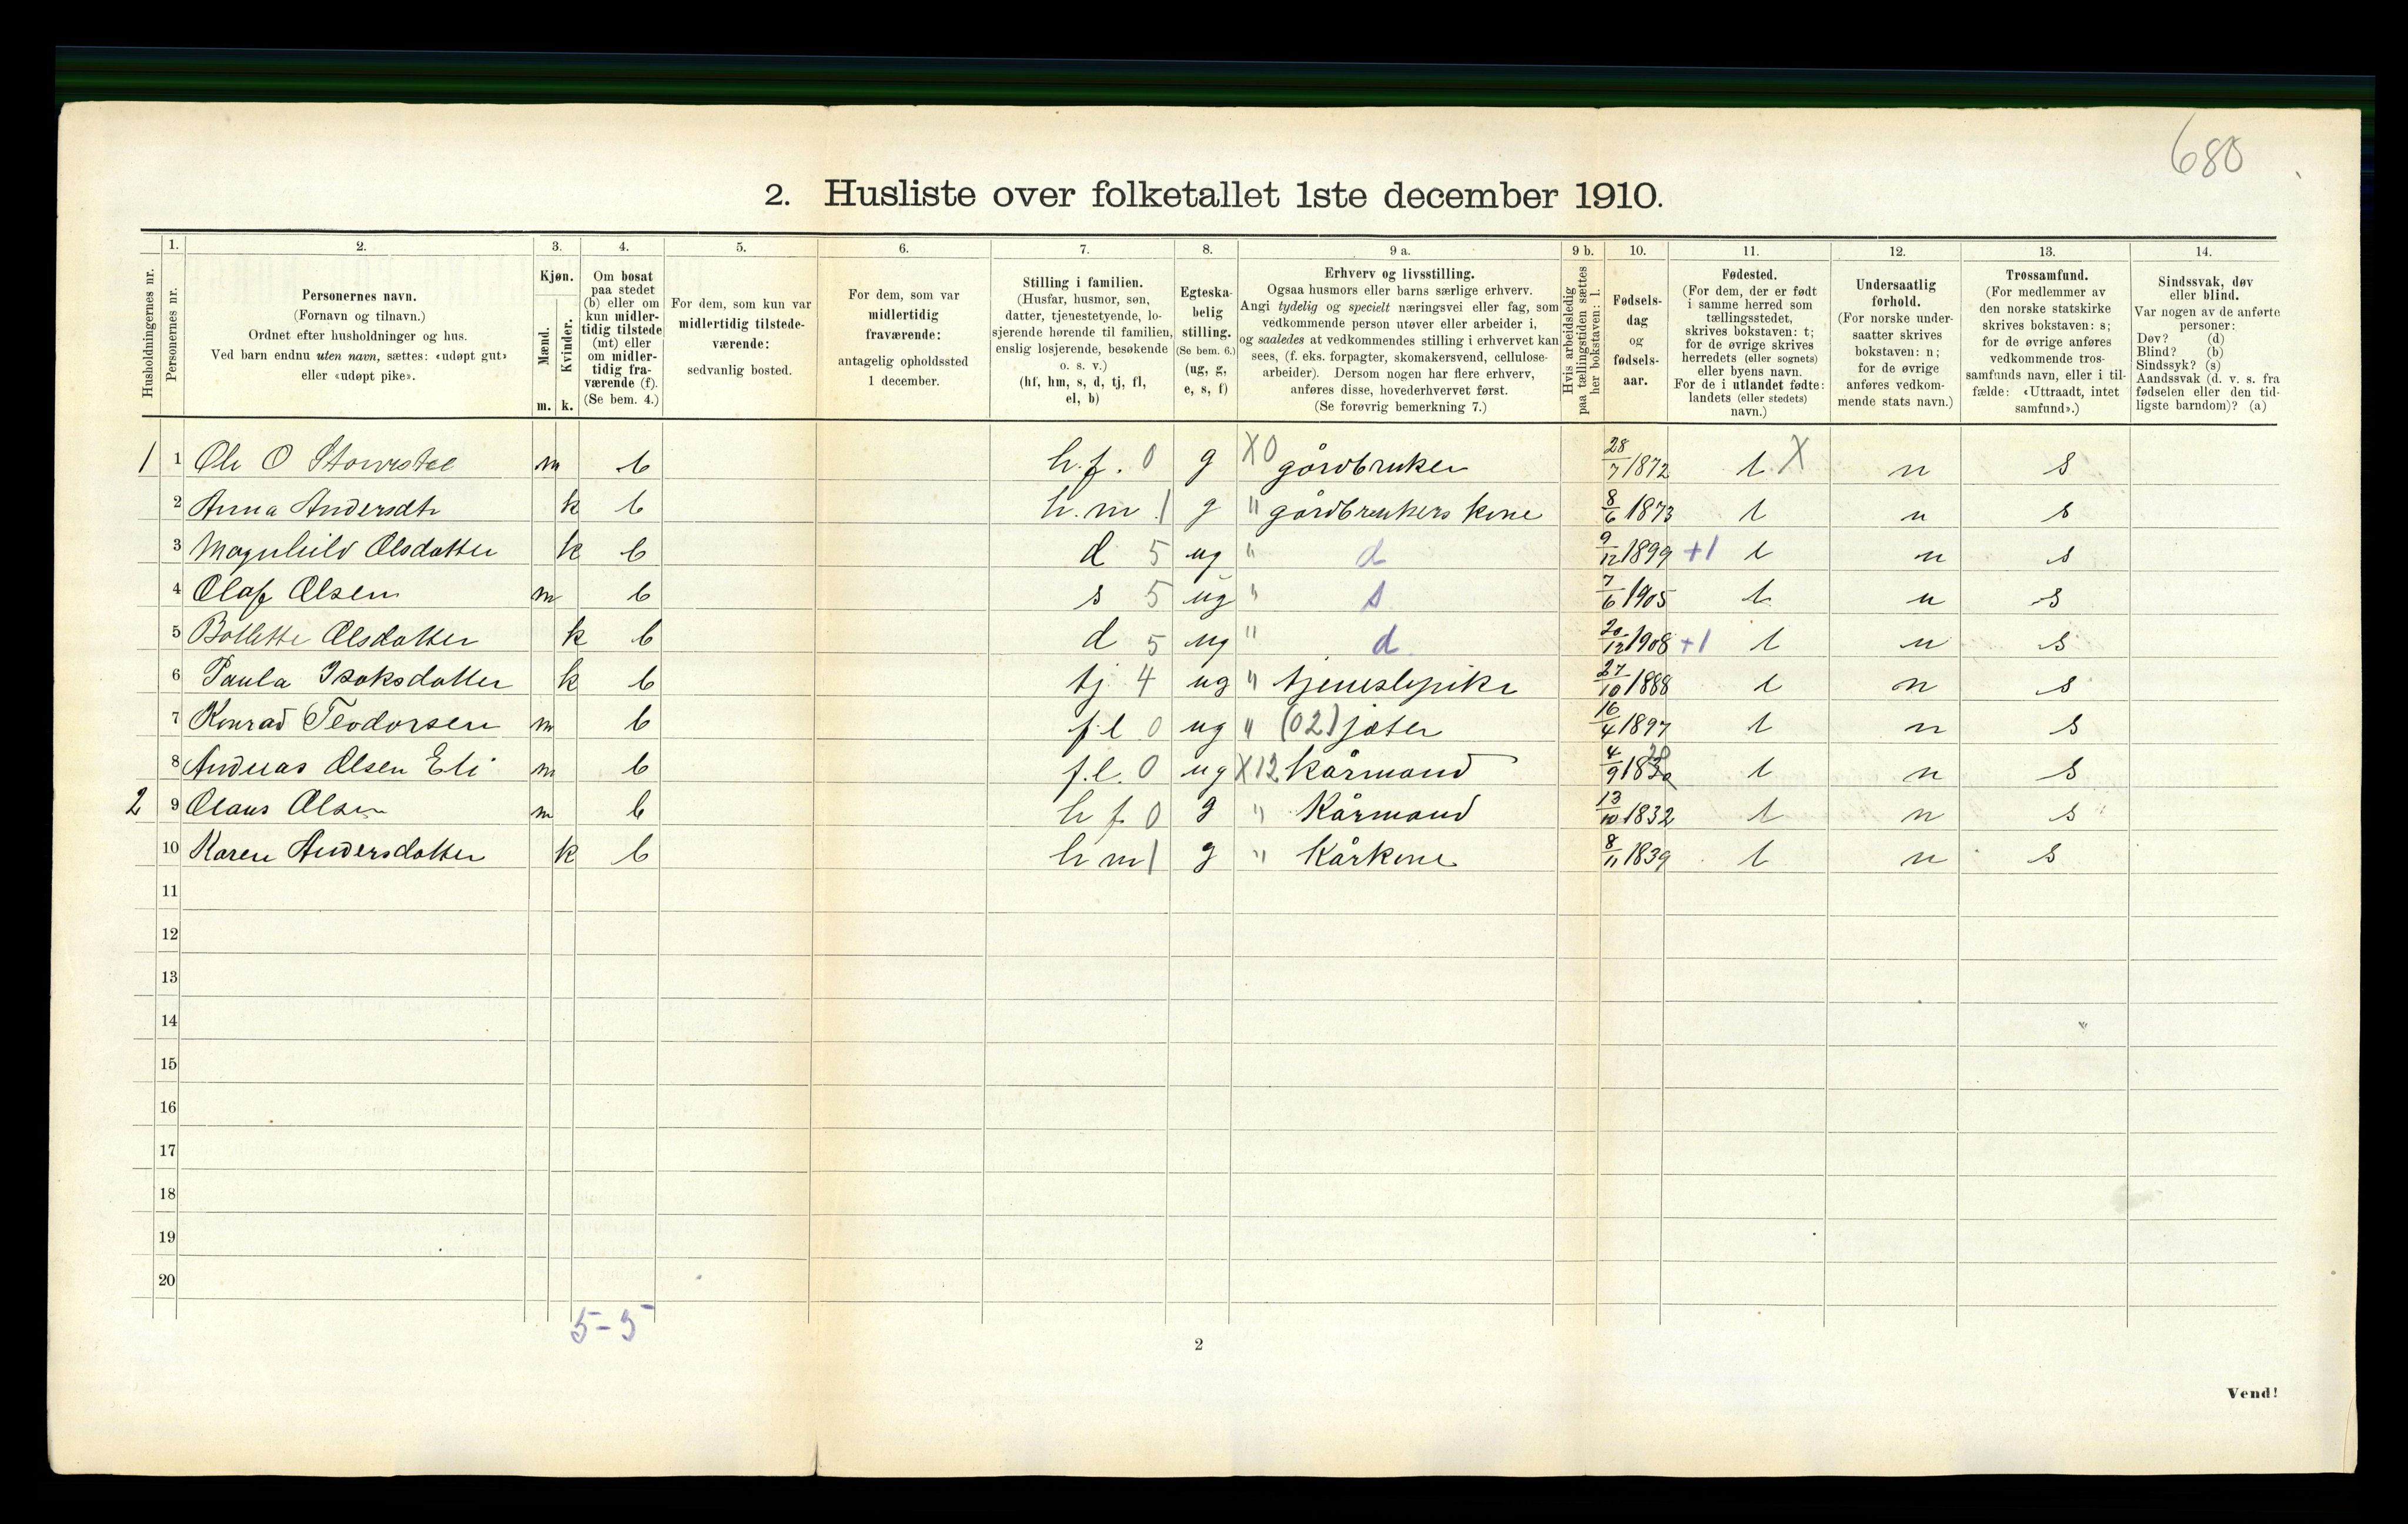 680
2. Husliste over folketallet 1ste december 1910.
Husholdningernes nr.
1.
Personernes nr.
2.
Personernes navn.
(Fornavn og tilnavn.)
Ordnet efter husholdninger og hus.
Ved barn endnu uten navn, sættes: «udøpt gut»
eller «udøpt pike».
3.
Kjøn.
Mænd.
Kvinder.
m. k.
4.
Om bosat
paa stedet
(b) eller om
kun midler-
tidig tilstede
(mt) eller
om midler-
tidig fra-
værende (f).
(Se bem. 4.)
5.
For dem, som kun var
midlertidig tilstede-
værende:
sedvanlig bosted.
6.
For dem, som var
midlertidig
fraværende:
antagelig opholdssted
1 december.
7.
Stilling i familien.
(Husfar, husmor, søn,
datter, tjenestetyende, lo-
sjerende hørende til familien,
enslig losjerende, besøkende
o. s. v.)
(hf, hm, s, d, tj, fl,
el, b)
8.
Egteska-
belig
stilling.
(Se bem. 6.)
(ug, g,
e, s, f)
9 a.
Erhverv og livsstilling.
Ogsaa husmors eller barns særlige erhverv.
Angi tydelig og specielt næringsvei eller fag, som
vedkommende person utøver eller arbeider i,
og saaledes at vedkommendes stilling i erhvervet kan
sees, (f. eks. forpagter, skomakersvend, cellulose-
arbeider). Dersom nogen har flere erhverv,
anføres disse, hovederhvervet først.
(Se forøvrig bemerkning 7.)
9 b.
Hvis arbeidsledig
paa tællingstiden sættes
her bokstaven: l.
10.
Fødsels-
dag
og
fødsels-
aar.
11.
Fødested.
(For dem, der er født
i samme herred som
tællingsstedet,
skrives bokstaven: t;
for de øvrige skrives
herredets (eller sognets)
eller byens navn.
For de i utlandet fødte:
landets (eller stedets)
navn.)
12.
Undersaatlig
forhold.
(For norske under-
saatter skrives
bokstaven: n;
for de øvrige
anføres vedkom-
mende stats navn.)
13.
Trossamfund.
(For medlemmer av
den norske statskirke
skrives bokstaven: s;
for de øvrige anføres
vedkommende tros-
samfunds navn, eller i til-
fælde: «Uttraadt, intet
samfund».)
14.
Sindssvak, døv
eller blind.
Var nogen av de anførte
personer:
Døv? (d)
Blind? (b)
Sindssyk? (s)
Aandssvak (d. v. s. fra
fødselen eller den tid-
ligste barndom)? (a)
1 1 Ole O m b h.f. 0 g X0 gårdbruker 28/7 1872 t X n s
2 Anna Andersdtr k b h.m 1 g " gårdbrukers kone 8/6 1873 t n s
3 Magnhild Olsdatter k b d 5 ug " d 9/12 1899 +1 t n s
4 Olaf Olsen m b s 5 ug " s 7/6 1905 t n s
5 Bollette Olsdatter k b d 5 ug " d 20/12 1908 +1 t n s
6 Paula Isaksdatter k b tj 4 ug " tjenestepike 27/10 1888 t n s
7 Konrad Teodorsen m b f.l 0 ug " (02) jæter 16/4 1897 t n s
8 Andreas Olsen Eli m b f.l. 0 ug X12 Kårmand 4/9 t n s
2 9 Olaus Olsen m b h f 0 g " Kårmand 13/10 1832 t n s
10 Karen Andersdatter k b h m 1 g " Kårkone 8/11 1839 t n s
11
12
13
14
15
16
17
18
19
20
5-5
2
Vend!